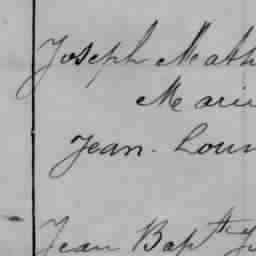 Joseph Math
Marie
Jean-Loui
Jean Bapte